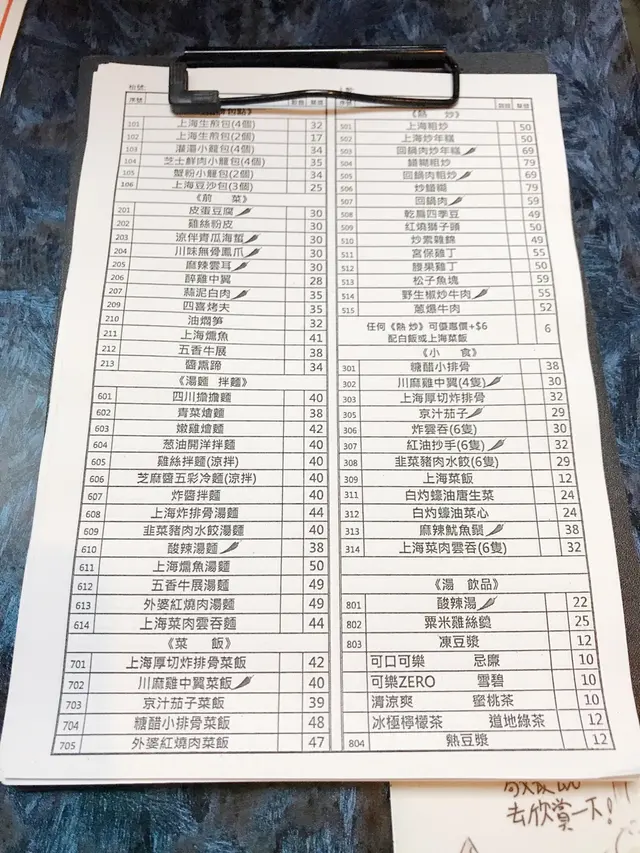 枱號
序號 數個 單價
101 上海生煎包(4個) 32
102 上海生煎包(2個) 17
103 灌湯小籠包(4個) 34
104 芝士鮮肉小籠包(4個) 35
105 蟹粉小籠包(2個) 34
106 上海豆沙包(3個) 25
《前 菜》
201 皮蛋豆腐 30
202 雞絲粉皮 30
203 涼伴青瓜海蜇 30
204 川味無骨鳳爪 30
205 麻辣雲耳 30
206 醉雞中翼 28
207 蒜泥白肉 35
209 四喜烤夫 35
210 油燜筍 32
211 上海燻魚 41
212 五香牛展 38
213 醬燻蹄 34
《湯麵 拌麵》
601 四川擔擔麵 40
602 青菜燴麵 38
603 嫩雞燴麵 42
604 葱油開洋拌麵 40
605 雞絲拌麵(涼拌) 40
606 芝麻醬五彩冷麵(涼拌) 40
607 炸醬拌麵 40
608 上海炸排骨湯麵 44
609 韭菜豬肉水餃湯麵 40
610 酸辣湯麵 38
611 上海燻魚湯麵 50
612 五香牛展湯麵 49
613 外婆紅燒肉湯麵 49
614 上海菜肉雲吞麵 44
《菜 飯》
701 上海厚切炸排骨菜飯 42
702 川麻雞中翼菜飯 40
703 京汁茄子菜飯 39
704 糖醋小排骨菜飯 48
705 外婆紅燒肉菜飯 47
序號 單價
《熱 炒》
501 上海粗炒 50
502 上海炒年糕 50
503 回鍋肉炒年糕 69
504 鱔糊粗炒 79
505 回鍋肉粗炒 65
506 炒鱔糊 79
507 回鍋肉 59
508 乾扁四季豆 49
509 紅燒獅子頭 50
510 炒素雜錦 49
511 宮保雞丁 55
512 腰果雞丁 50
513 松子魚塊 59
514 野生椒炒牛肉 55
515 蔥爆牛肉 52
任何《熱 炒》可優惠價+$6 6
配白飯或上海菜飯
《小 食》
301 糖醋小排骨 38
302 川麻雞中翼(4隻) 30
303 上海厚切炸排骨 32
305 京汁茄子 29
306 炸雲吞(6隻) 30
307 紅油抄手(6隻) 32
308 韭菜豬肉水餃(6隻) 29
309 上海菜飯 12
311 白灼蠔油唐生菜 24
312 白灼蠔油菜心 24
313 麻辣魷魚鬚 38
314 上海菜肉雲吞(6隻) 32
《湯 飲品》
801 酸辣湯 22
802 粟米雞絲羹 25
803 凍豆漿 12
可口可樂 忌廉 10
可樂ZERO 雪碧 10
清涼爽 蜜桃茶 10
冰極檸檬茶 道地綠茶 12
804 熱豆漿 12
去欣賞一下!